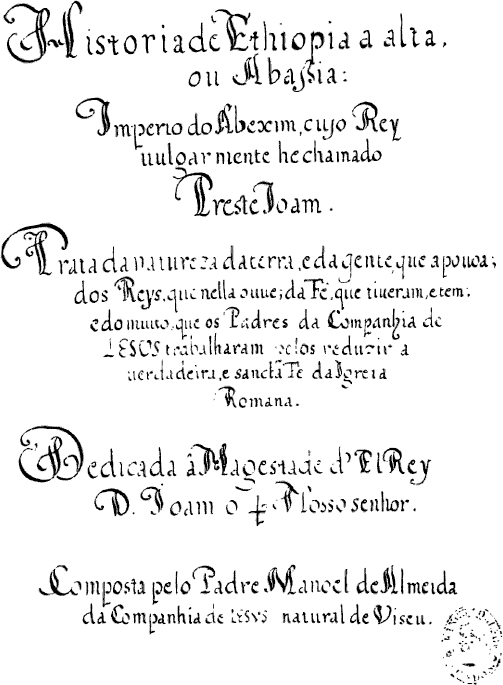 Historia de Ethiopia a alta,
ou Abaßia:
Imperio do Abexim, cujo Rey
uulgarmente he chamado
Preste Ioam.
Trata da natureza da terra, e da gente, que a pouoa;
dos Reys, que nella ouue; da Fé, que tiueram, e tem;
e do muito, que os Padres da Companhia de
IESOS trabalharam pelos reduzir a
uerdadeira, e sanctã Fé da Igreia
Romana.
Dedicada â Magestade d'El Rey
D. Ioam o 4º Nosso senhor.
Composta pelo Padre Manoel de Almeida
da Companhia de IESVS natural de Viseu.